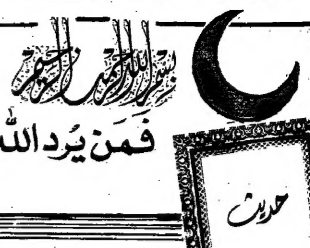 بسم الله الرحمن الرحيم
فَمَن يُرد الله
حديث